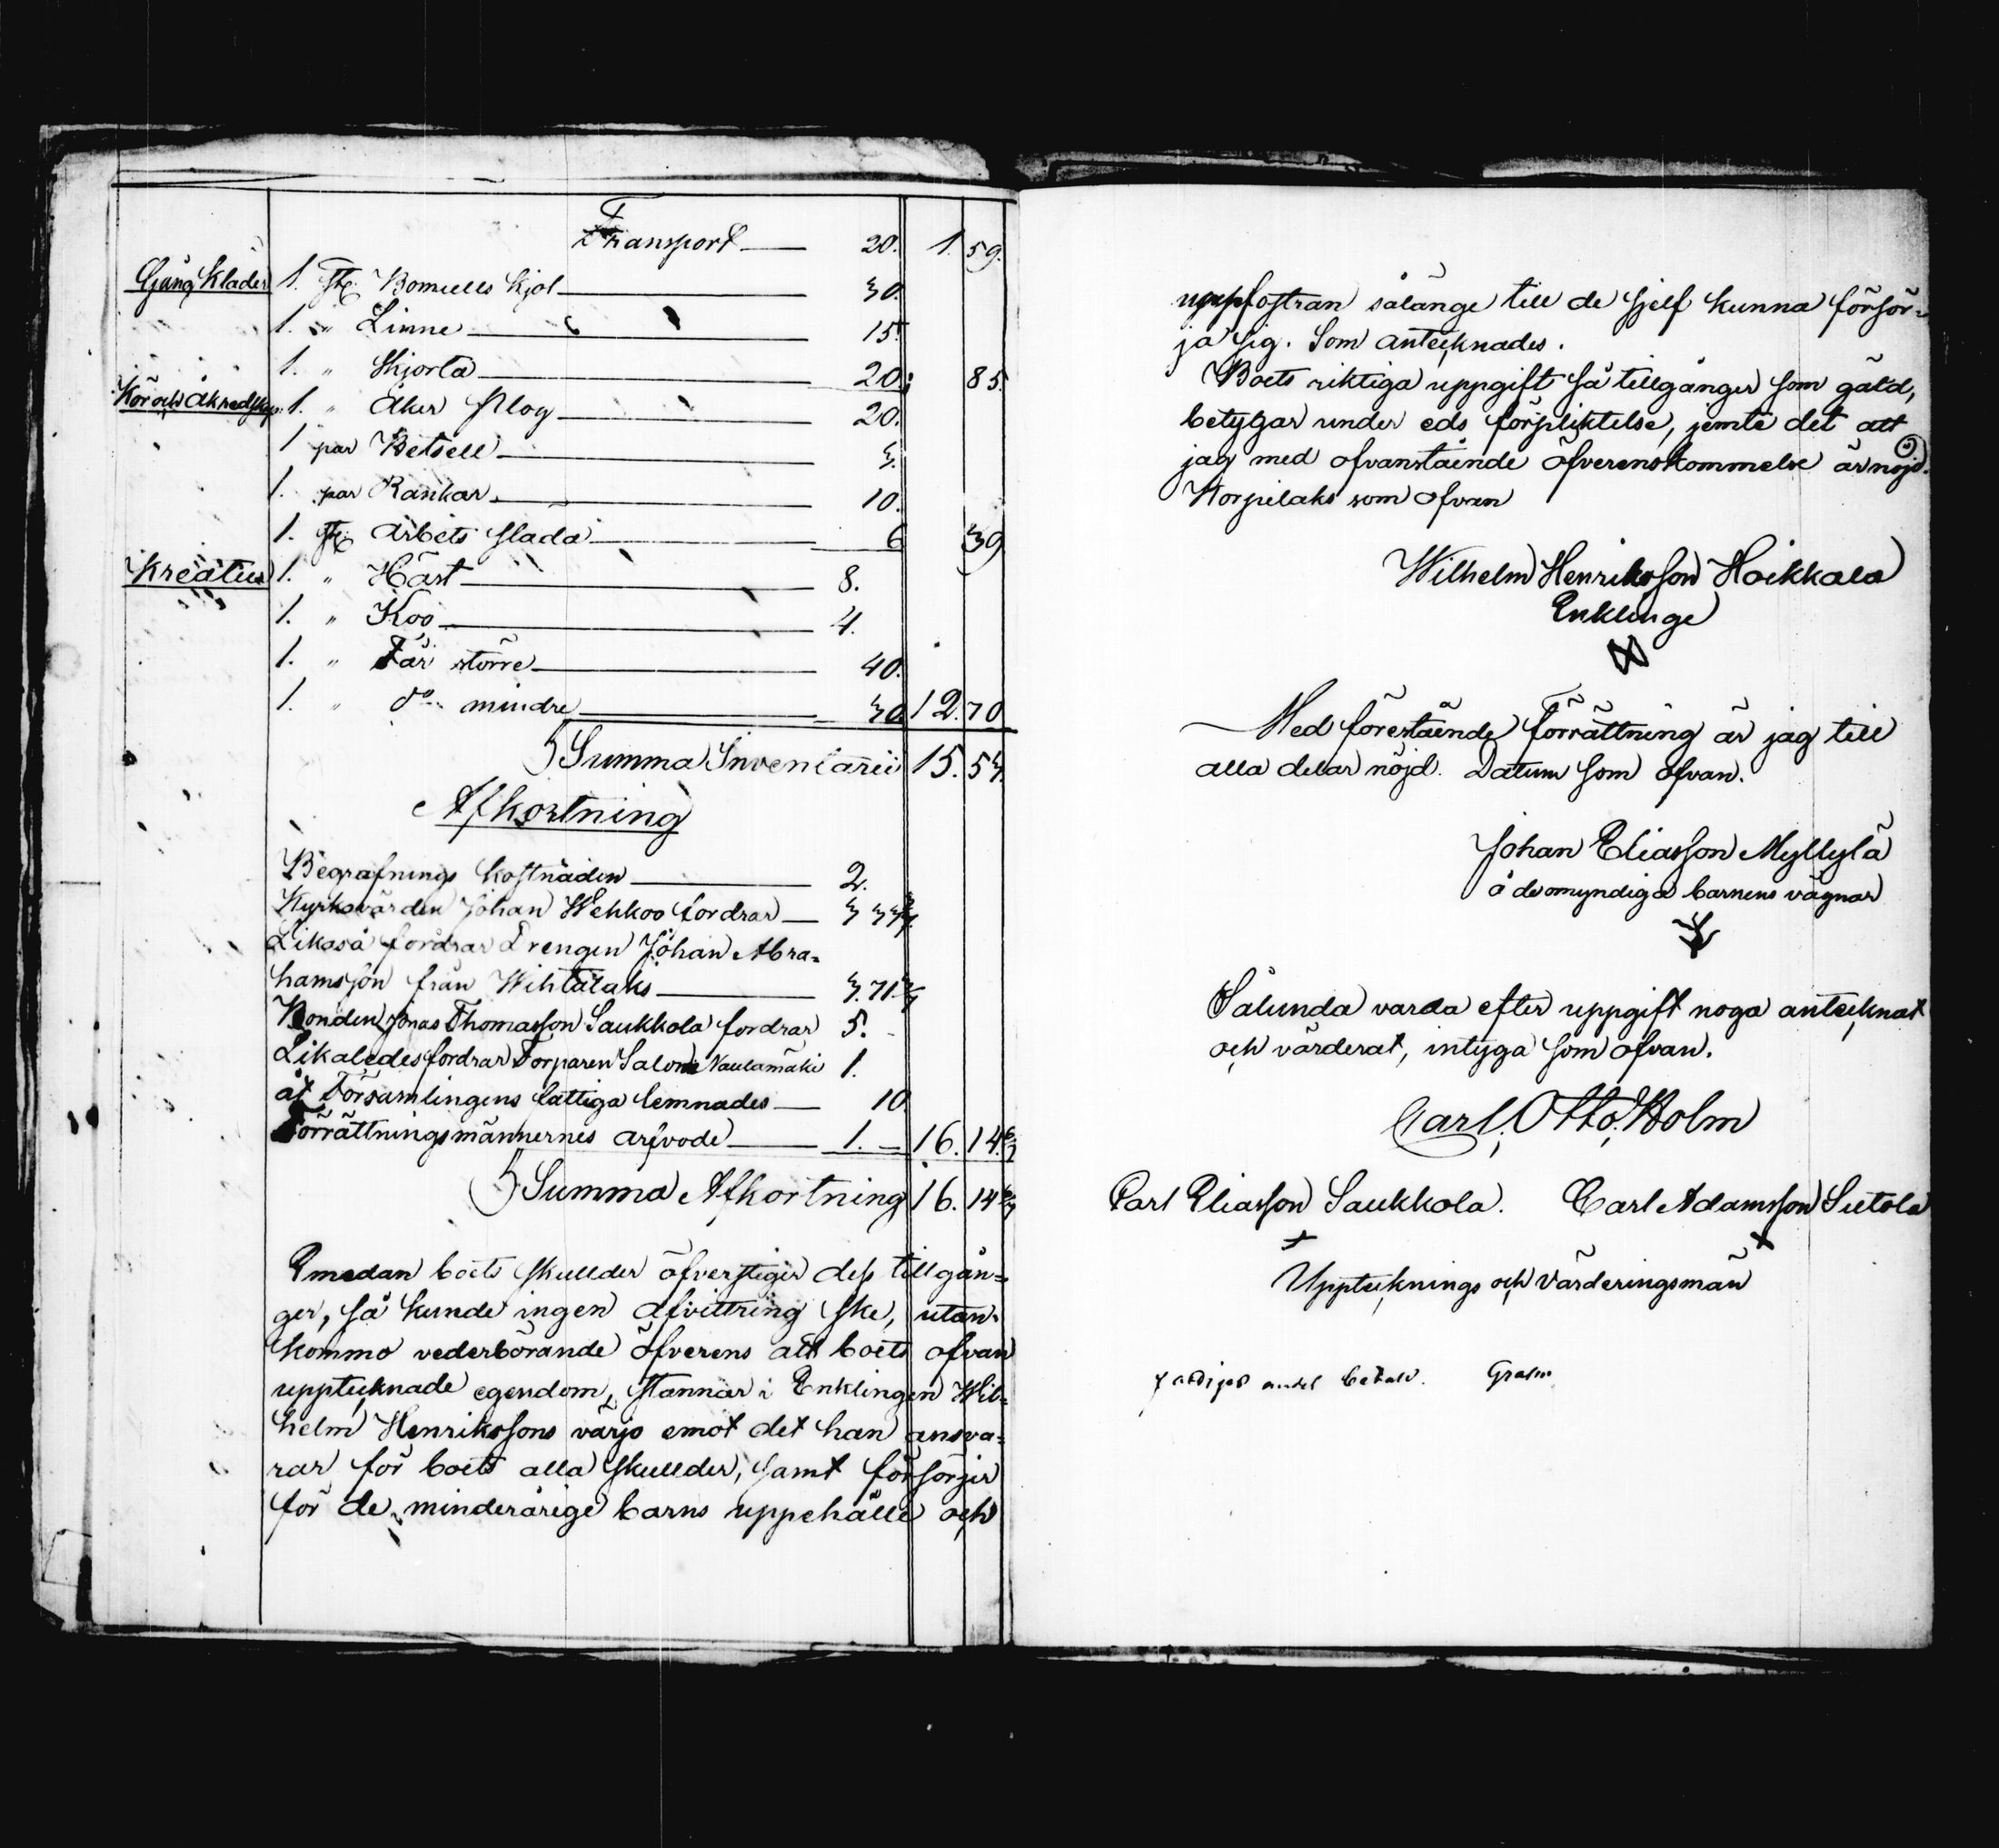 Transport 20. 1. 59.
Gång Kläder 1. st. Bomulls Kjol 30.
1. " Linne 15.
1. " Skjorta 20. 85.
Kör och Åkredskap 1. " Åker Plog 20.
1 par Betsell 3.
1. par Rankar 10.
1. st. Arbets Slada 6 39
Kreatur 1. " Häst 8.
1. " Koo 4.
1. " Får större 40.
1. " do mindre 30 12. 70
Summa Inventarii 15. 53.
Afkortning
Begrafnings kostnaden 2.
Kyrkovärden Johan Wehkoo fordrar 3
Likaså fordrar Drengen Johan Abra=
hamsson från Wihtalaks 3. 71.
Bonden Jonas Thomasson Saukkola fordrar 5.
Likaledes fordrar Torparen Salom Naulamäki 1.
åt Församlingens fattiga lemnades 10
Förrättningsmännernes arfvode 1. — 16. 14
Summa Afkortning 16. 14
Emedan boets skullder öfverstiger dess tillgån=
ger, så kunde ingen afvittring ske, utan
kommo vederbörande öfverens att boets ofvan
upptecknade egendom, stannar i Enklingen Wil=
helm Henrikssons värjo emot det han ansva=
rar för boets alla skullder, samt försörjer
för de minderårige barns uppehälle och
uppfostran sålänge till de sjelf kunna försör=
ja sig. Som antecknades.
Boets riktiga uppgift så tillgånger som gäld,
betygar under eds förpliktelse, jemte det att
jag med ofvanstående öfverenskommelse är nöjd.
Korpilaks som ofvan
Wilhelm Henriksson Hoikkala
Enklinge
Med förestående Förrättning är jag till
alla delar nöjd. Datum som ofvan.
Johan Eliasson Myllylä
å de omyndiga barnens vägnar
Sålunda varda efter uppgift noga antecknat
och värderat, intyga som ofvan.
Carl Otto Holm
Carl Eliasson Saukkola. Carl Adamsson Sutola
Upptecknings och Värderingsmän
Fattiges andel betald.